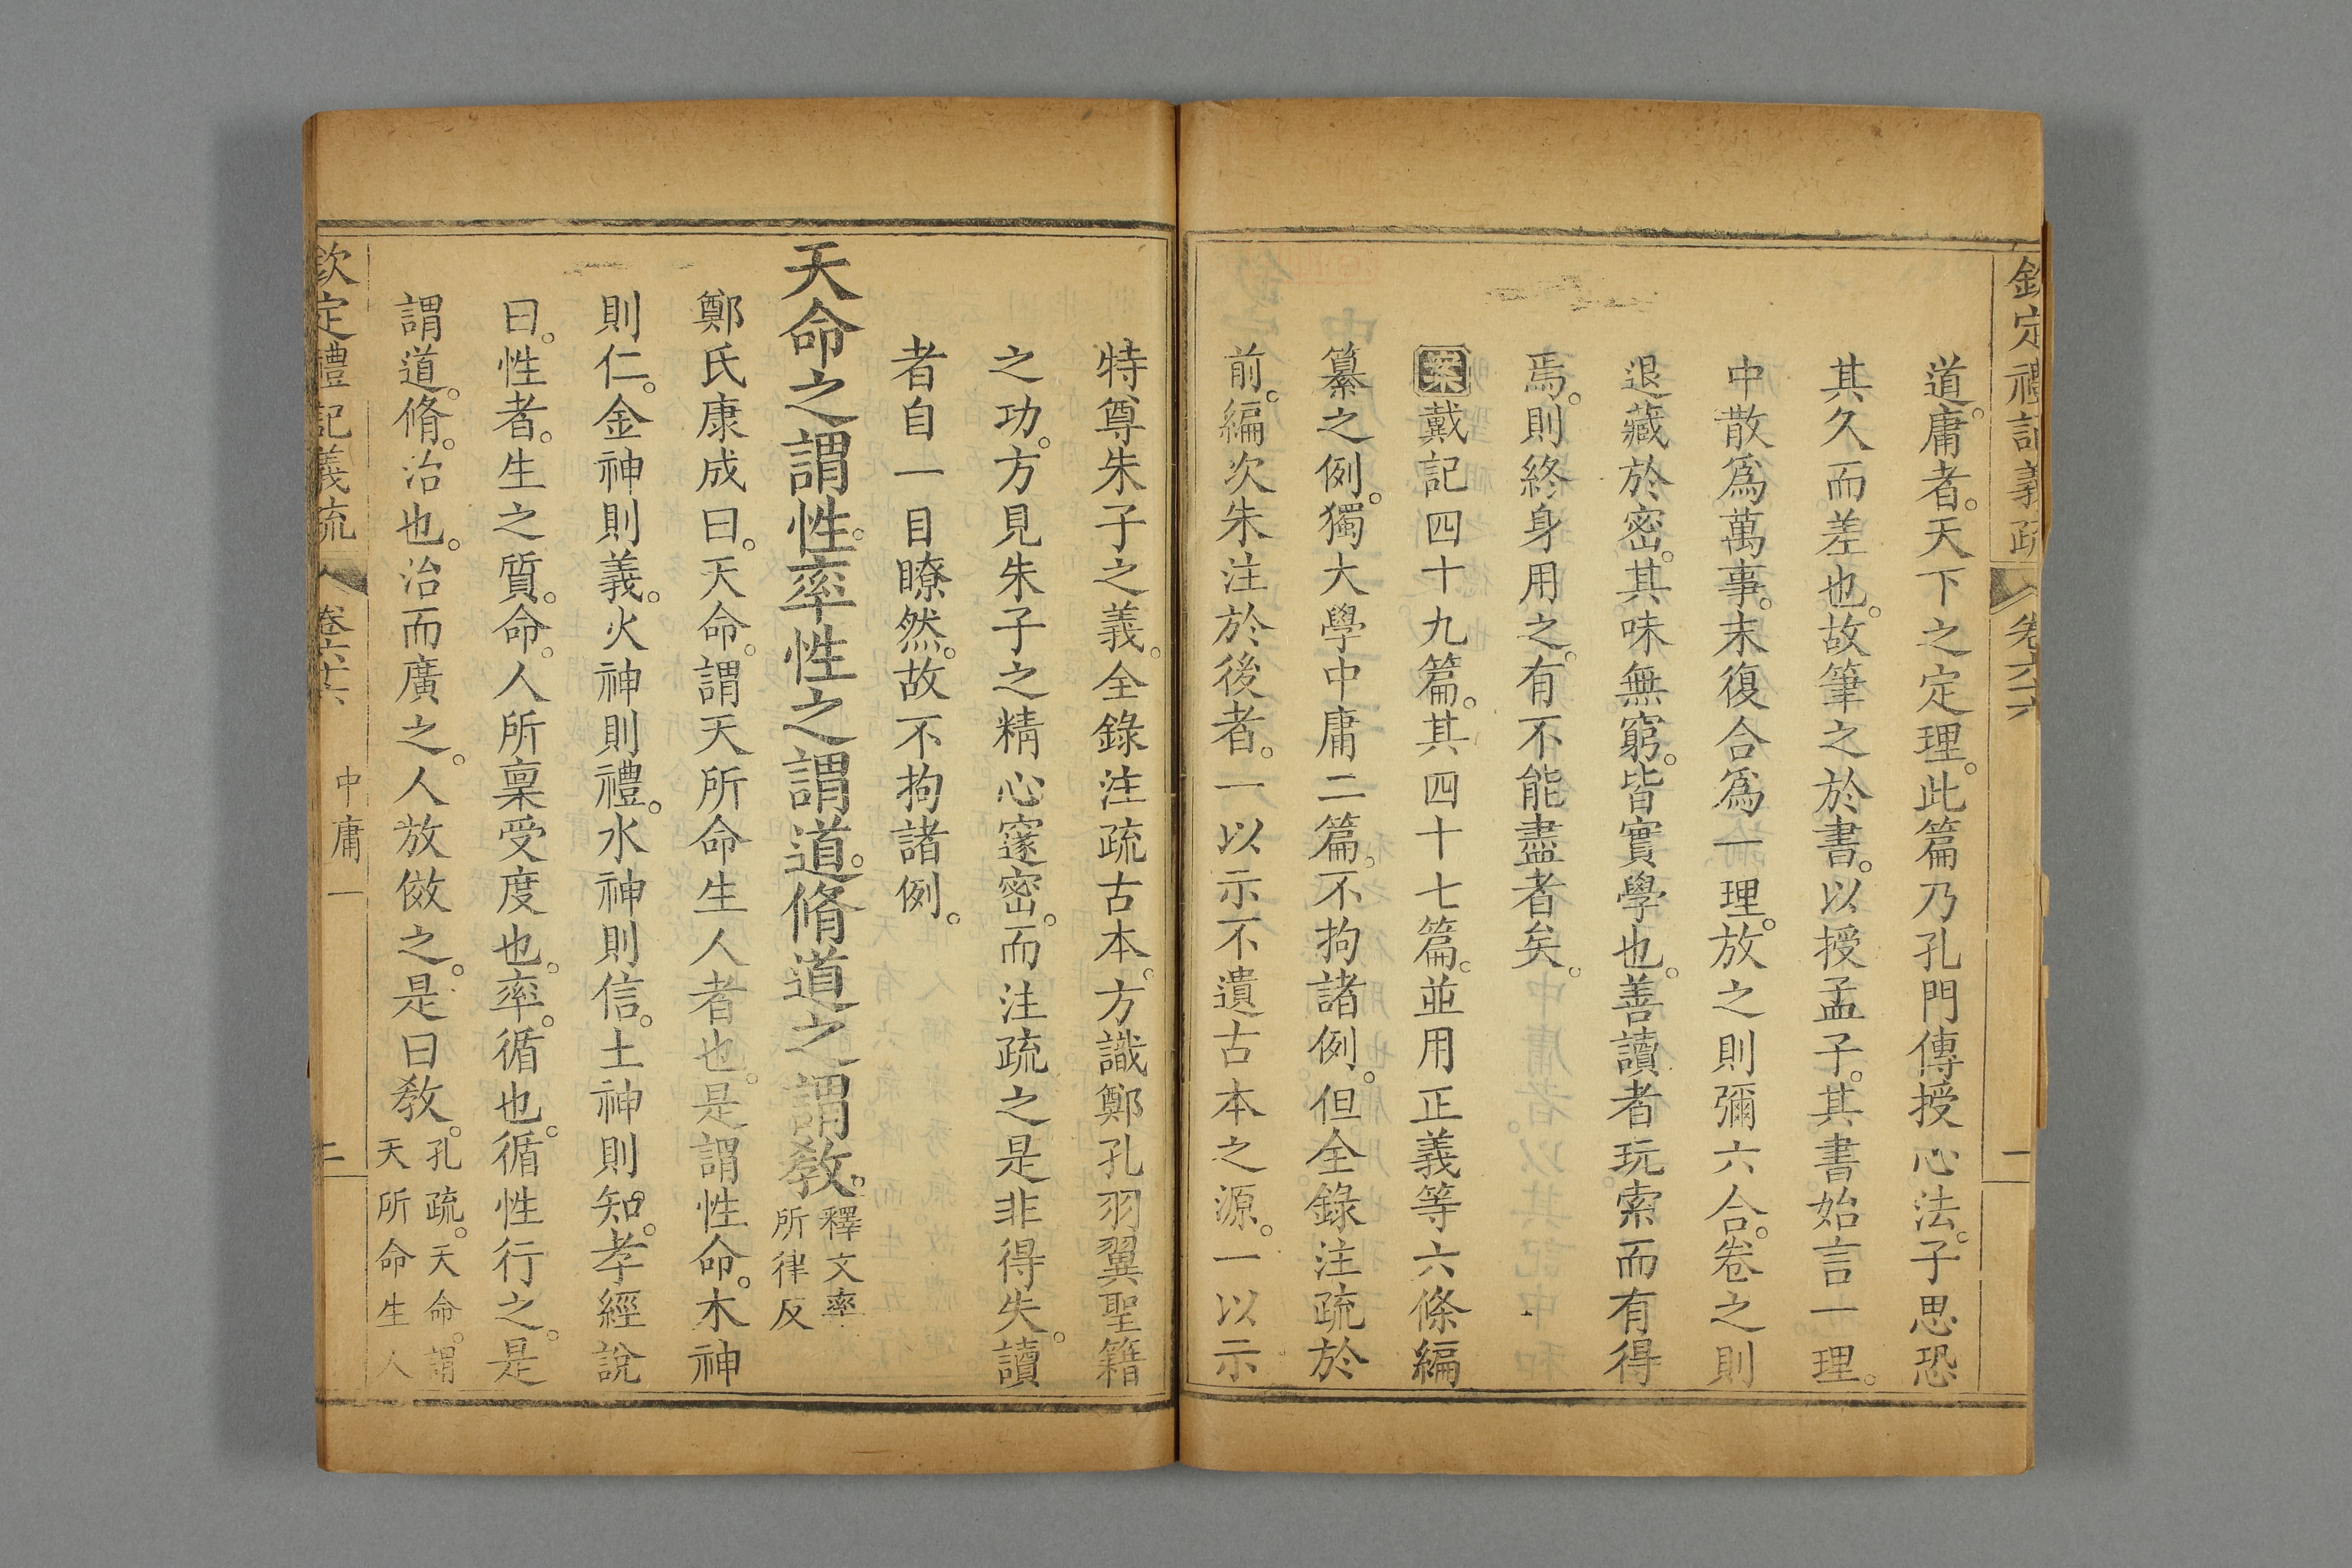 欽定禮記義疏 卷六六 一
道。庸者。天下之定理。此篇乃孔門傳授心法。子思恐
其久而差也。故筆之於書。以授孟子。其書始言一理。
中散爲萬事。末復合爲一理。放之則彌六合。卷之則
退藏於密。其味無窮。皆實學也。善讀者玩索而有得
焉。則終身用之。有不能盡者矣。
案戴記四十九篇。其四十七篇。並用正義等六條編
纂之例。獨大學中庸二篇。不拘諸例。但全錄注疏於
前。編次朱注於後者。一以示不遺古本之源。一以示
特尊朱子之義。全錄注疏古本。方識鄭孔羽翼聖籍
之功。方見朱子之精心邃密。而注疏之是非得失。讀
者自一目瞭然。故不拘諸例。
天命之謂性。率性之謂道。脩道之謂敎。釋文率
所律反
鄭氏康成曰。天命。謂天所命生人者也。是謂性命。木神
則仁。金神則義。火神則禮。水神則信。土神則知。孝經說
曰。性者。生之質。命。人所稟受度也。率。循也。循性行之。是
謂道。脩。治也。治而廣之。人放傚之。是曰敎。孔疏。天命。謂
天所命生人
欽定禮記義疏 卷六十六 中庸一 二